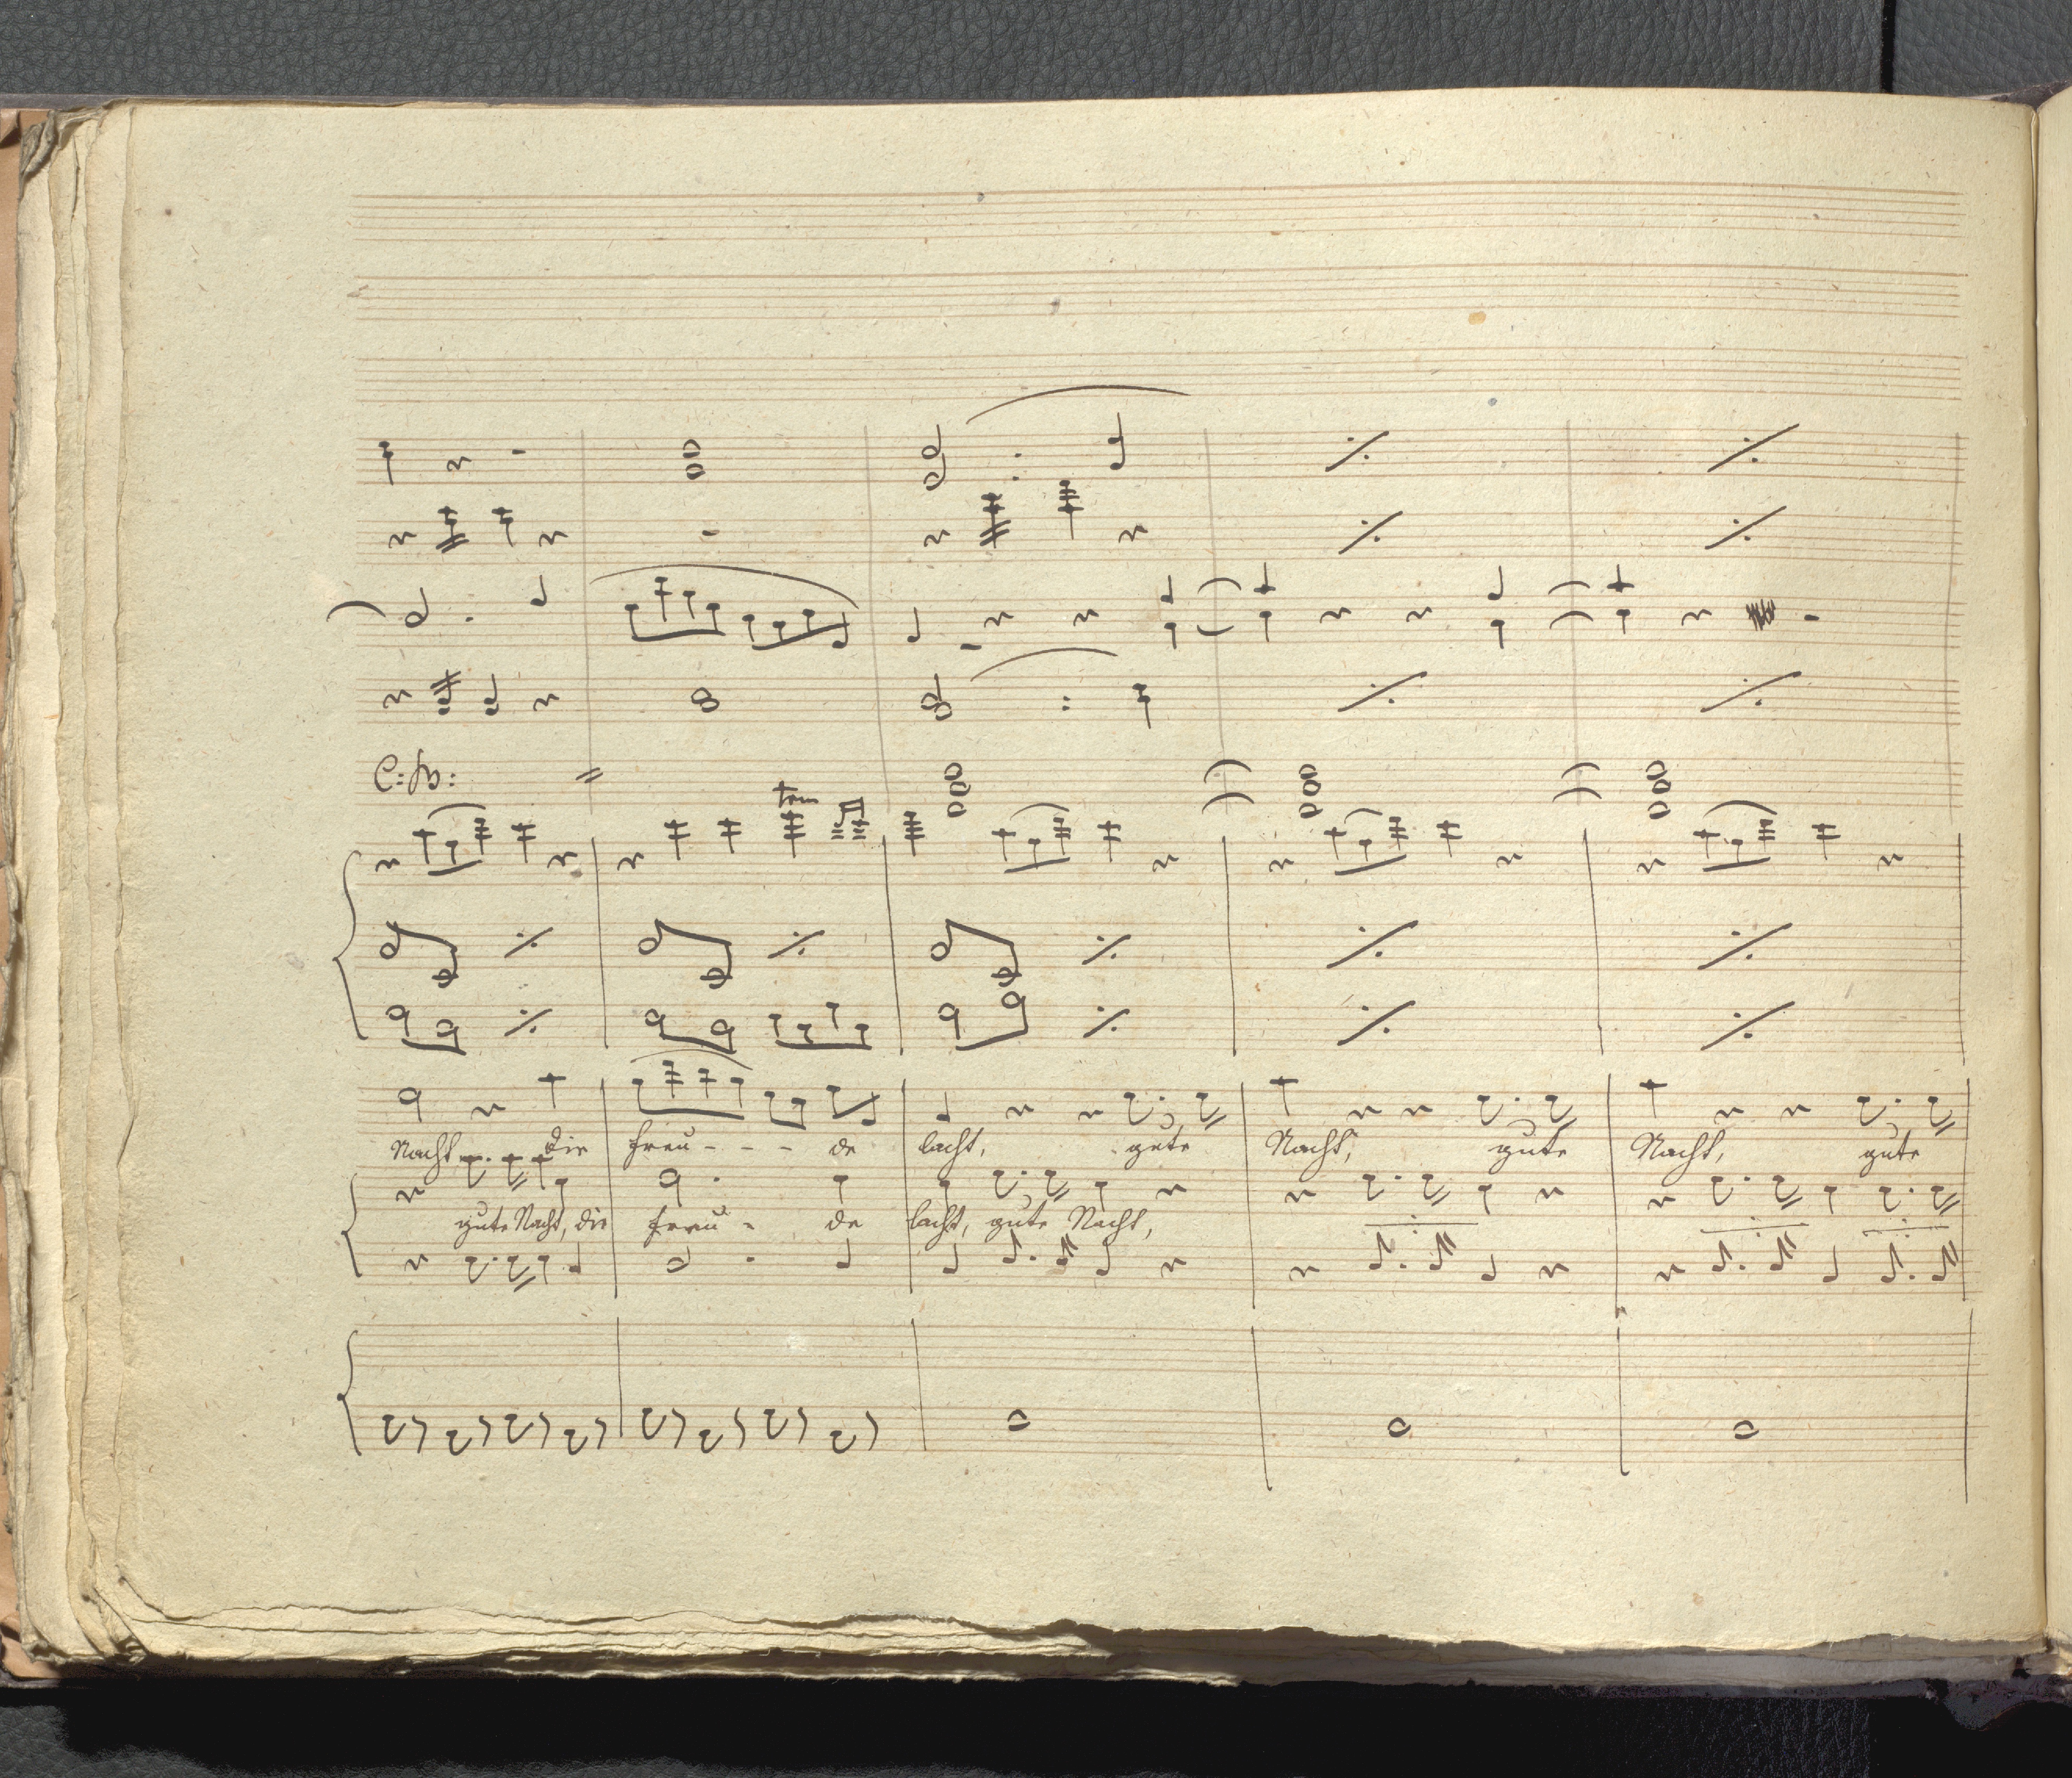 C: B:
trm
Nacht die freu - - - de lacht, gute Nacht, gute Nacht, gute
gute Nacht, die freu - de lacht, gute Nacht,